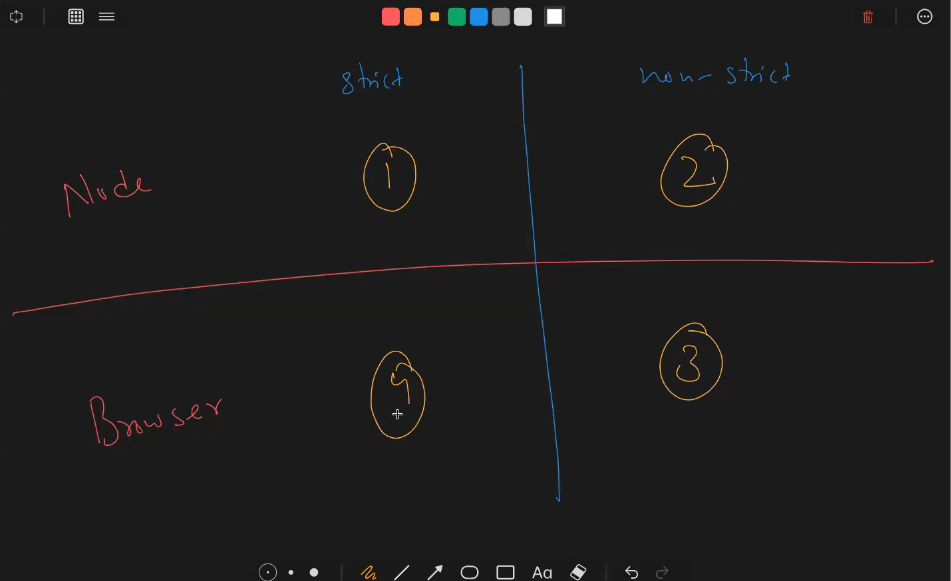 strict non-strict
Node 1 2
Browser 4 3
Aa